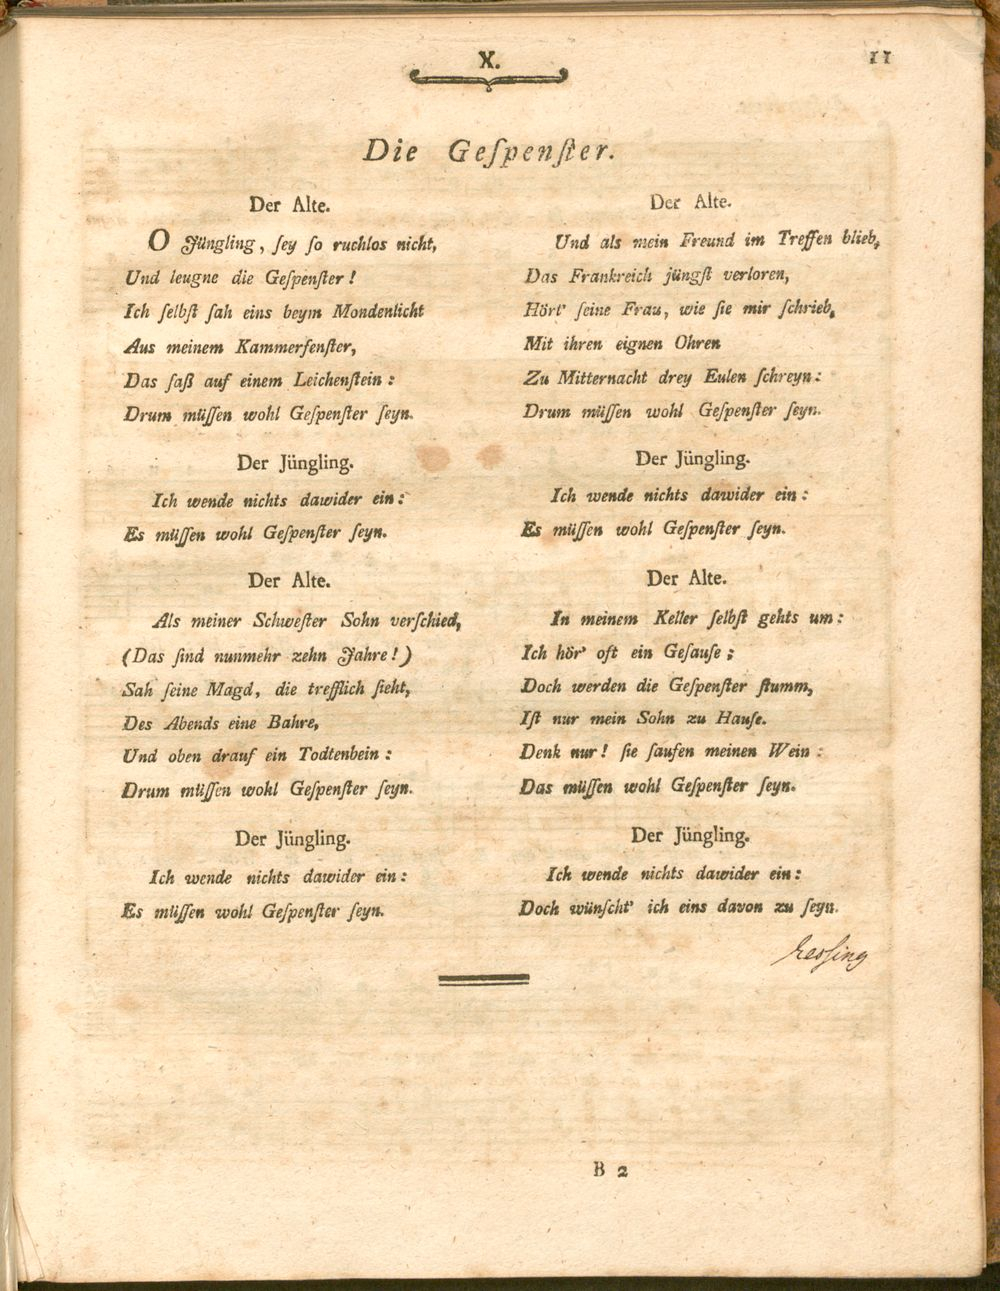 X.
11
Die Geſpenſter.
Der Alte.
O Jüngling, ſey ſo ruchlos nicht,
Und leugne die Geſpenſter!
Ich ſelbſt ſah eins beym Mondenlicht
Aus meinem Kammerfenſter,
Das ſaß auf einem Leichenſtein:
Drum müſſen wohl Geſpenſter ſeyn.
Der Jüngling.
Ich wende nichts dawider ein:
Es müſſen wohl Geſpenſter ſeyn.
Der Alte.
Als meiner Schweſter Sohn verſchied,
(Das ſind nunmehr zehn Jahre!)
Sah ſeine Magd, die trefflich ſieht,
Des Abends eine Bahre,
Und oben drauf ein Todtenbein:
Drum müſſen wohl Geſpenſter ſeyn.
Der Jüngling.
Ich wende nichts dawider ein:
Es müſſen wohl Geſpenſter ſeyn.
Der Alte.
Und als mein Freund im Treffen blieb,
Das Frankreich jüngſt verloren,
Hört' ſeine Frau, wie ſie mir ſchrieb,
Mit ihren eignen Ohren
Zu Mitternacht drey Eulen ſchreyn:
Drum müſſen wohl Geſpenſter ſeyn.
Der Jüngling.
Ich wende nichts dawider ein:
Es müſſen wohl Geſpenſter ſeyn.
Der Alte.
In meinem Keller ſelbſt gehts um:
Ich hör' oft ein Geſauſe;
Doch werden die Geſpenſter ſtumm,
Iſt nur mein Sohn zu Hauſe.
Denk nur! ſie ſaufen meinen Wein:
Das müſſen wohl Geſpenſter ſeyn.
Der Jüngling.
Ich wende nichts dawider ein:
Doch wünſcht' ich eins davon zu ſeyn.
Leſsing
B 2